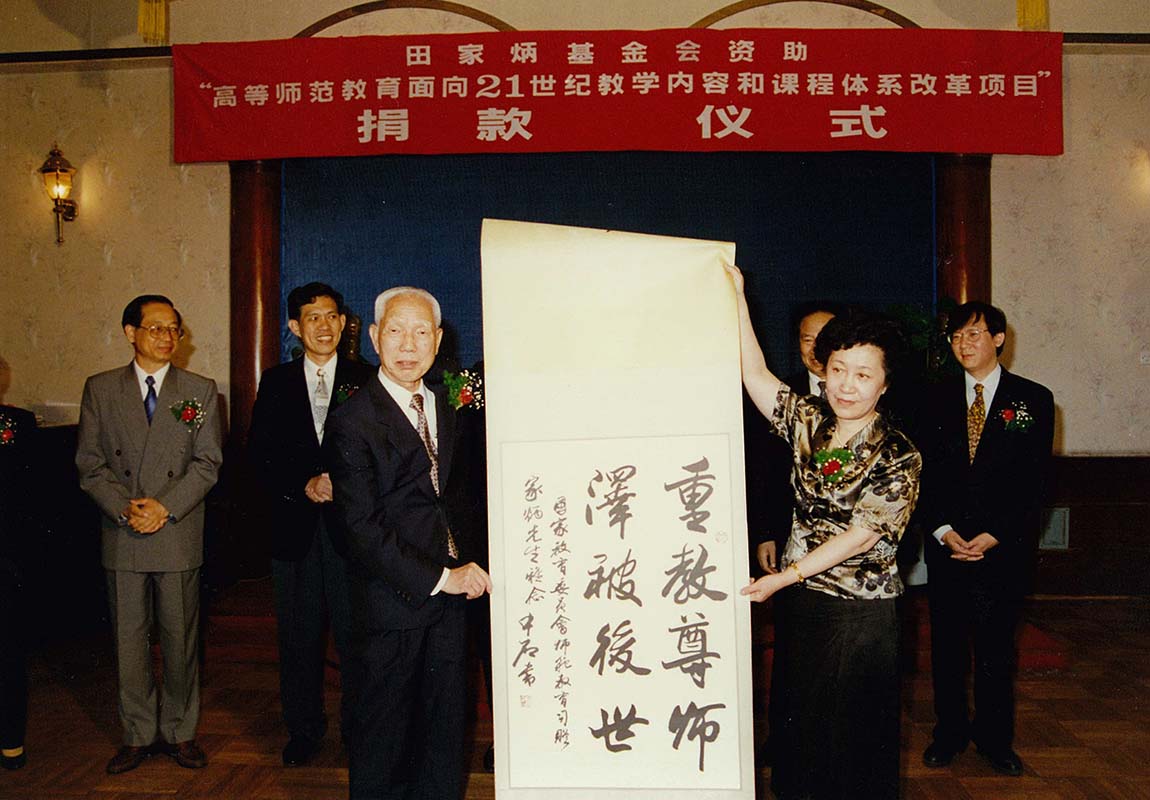 田家炳基金会资助
“高等师范教育面向21世纪教学内容和课程体系改革项目”
捐款 仪式
重教尊师
澤被後世
國家教育委員會师範教育司贈
家炳先生雅念 中石書